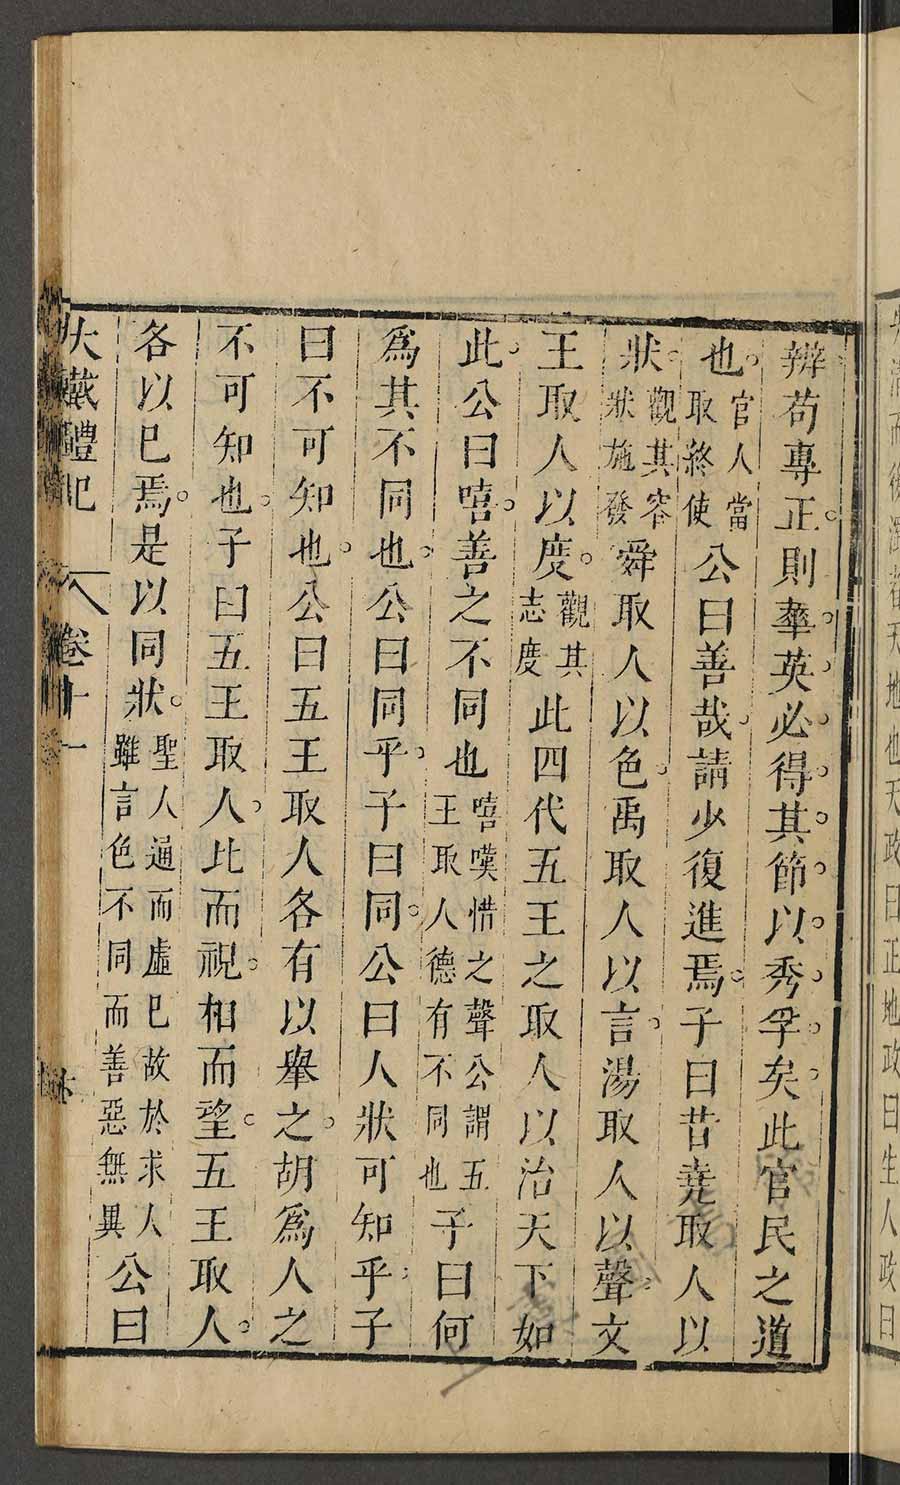 辯苟專正則𦦨英必得其節以秀孚矣此官民之道
也官人當取終使公曰善哉請少復進焉子曰昔堯取人以
狀觀其容狀施發舜取人以色禹取人以言湯取人以聲文
王取人以度觀其志度此四代五王之取人以治天下如
此公曰嘻善之不同也嘻嘆惜之聲公謂五王取人德有不同也子曰何
爲其不同也公曰同乎子曰同公曰人狀可知乎子
曰不可知也公曰五王取人各有以舉之胡爲人之
不可知也子曰五王取人比而視相而望五王取人
各以巳焉是以同狀聖人通而虛巳故於求人雖言色不同而善惡無異公曰
大戴禮記 卷十一